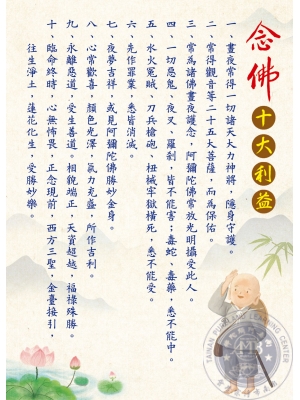 念佛
十大利益
一、晝夜常得一切諸天大力神將，隱身守護。
二、常得觀音等二十五大菩薩，而為保佑。
三、常為諸佛晝夜護念，阿彌陀佛常放光明攝受此人。
四、一切惡鬼、夜叉、羅剎，皆不能害；毒蛇、毒藥，悉不能中。
五、水火冤賊、刀兵槍砲、杻械牢獄橫死，悉不能受。
六、先作罪業，悉皆消滅。
七、夜夢吉祥，或見阿彌陀佛勝妙金身。
八、心常歡喜，顏色光澤，氣力充盛，所作吉利。
九、永離惡道，受生善道。相貌端正，天資超越，福祿殊勝。
十、臨命終時，心無怖畏，正念現前，西方三聖，金臺接引，
往生淨土，蓮花化生，受勝妙樂。